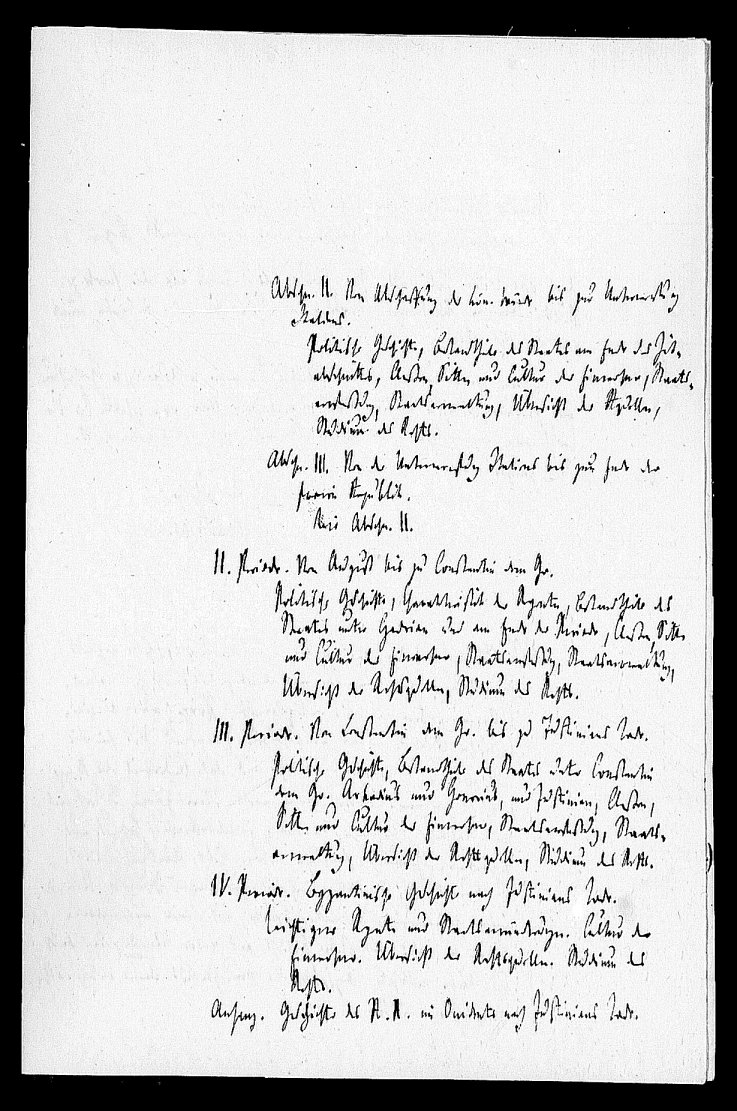 Abschn. II. Von Abschaffung der kön. Würde bis zur Unterwerfung
Italiens.
Politische Geschichte, Bestandtheile des Staates am Ende des Zeit-
abschnittes, Classen, Sitten und Cultur der Einwohner, Staats-
verfassung, Staatsverwaltung, Übersicht der Rquellen,
Studium des Rechts.
Abschn. III. Von der Unterwerfung Italiens bis zum Ende der
freien Republik.
Wie Abschn. II.
II. Periode. Von August bis zu Constantin dem Gr.
Politische Geschichte, Charakteristik der Regenten, Bestandtheile des
Staates unter Hadrian und am Ende der Periode, Classen, Sitten
und Cultur der Einwohner, Staatsverfassung, Staatsverwaltung,
Übersicht der Rechtsquellen, Studium des Rechts.
III. Periode. Von Constantin dem Gr. bis zu Justinians Tode.
Politische Geschichte, Bestandtheile des Staates unter Constantin
dem Gr. Arkadius und Honorius, und Justinian, Classen,
Sitten und Cultur der Einwohner, Staatsverfassung, Staats-
verwaltung, Übersicht der Rechtsquellen, Studium des Rechts.
IV. Periode. Byzantinische Geschichte nach Justinians Tode.
Wichtigere Regenten und Staatsveränderungen. Cultur der
Einwohner. Übersicht der Rechtsquellen. Studium des
Rechts.
Anhang. Geschichte des R. R. im Occidente nach Justinians Tode.